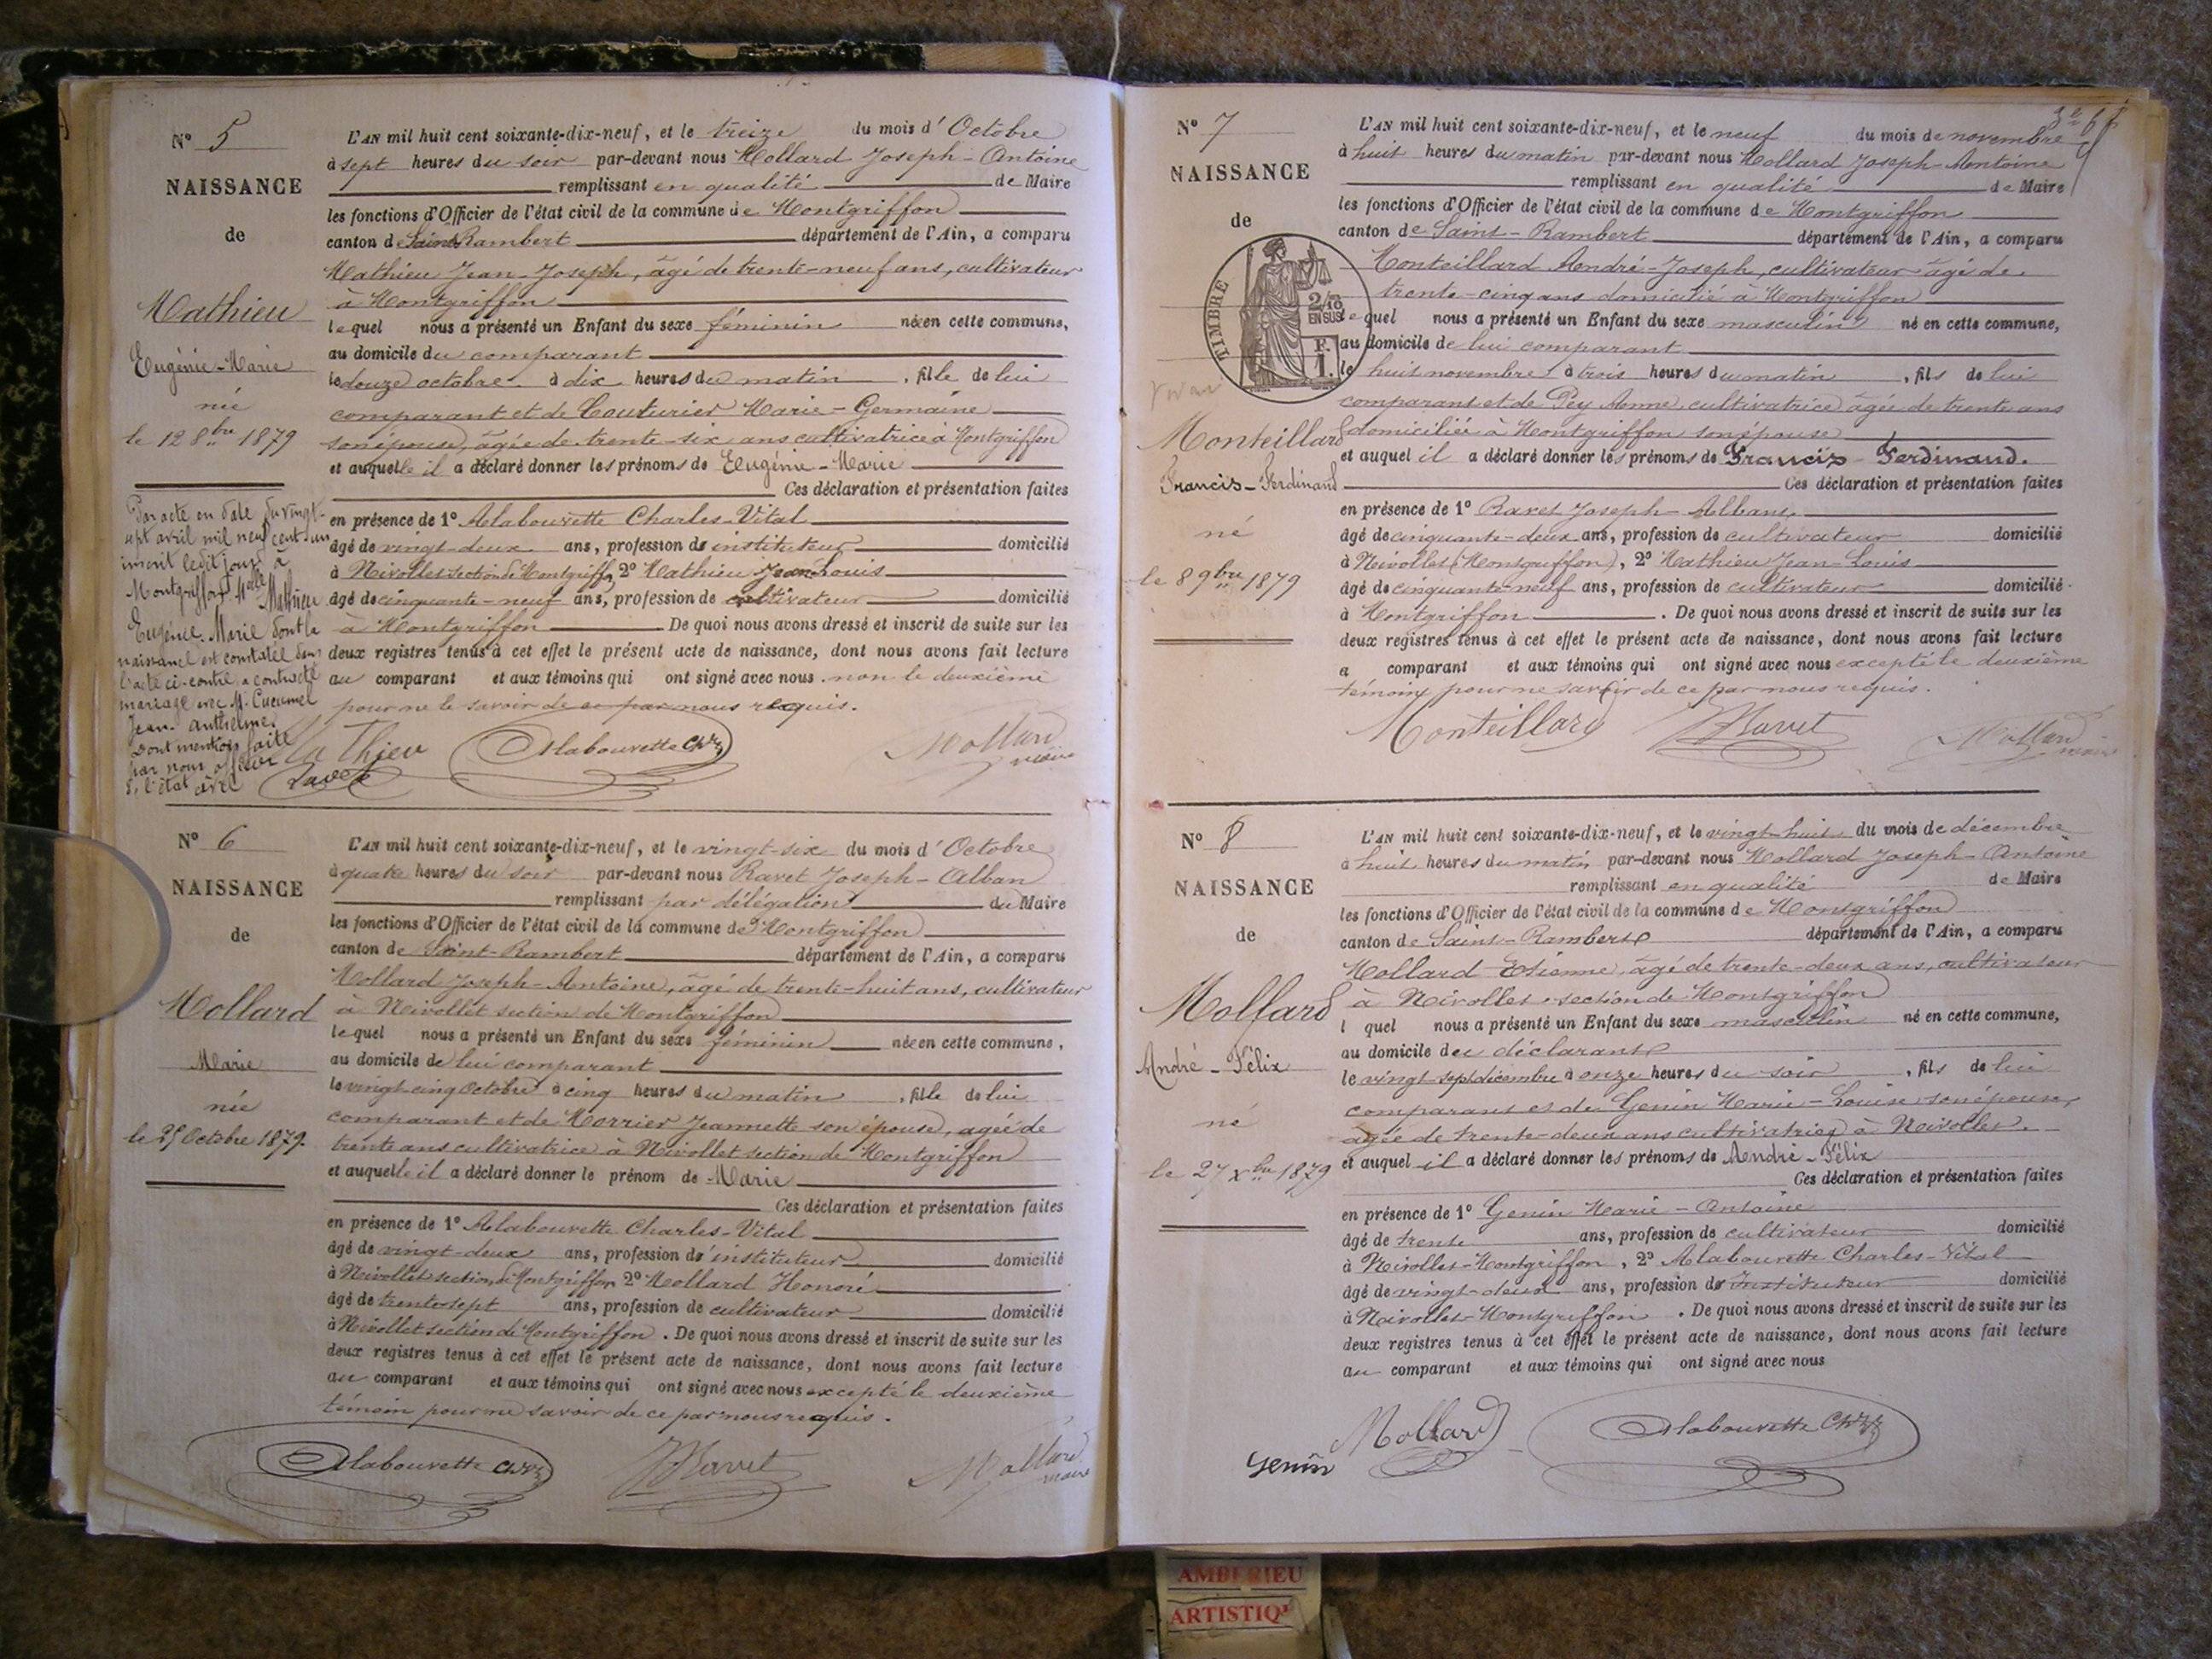 N° 5
NAISSANCE
de
Mathieu
Eugénie-Marie
née
le 12 8bre 1879
Par acte en date du vingt-
sept avril mil neuf cent un
inscrit ledit jour à
Montgriffon Melle Mathieu
Eugénie Marie dont la
naissance est constatée dans
l'acte ci-contre a contracté
mariage avec M. Cucumel
Jean Anthelme.
Dont mention faite
par nous officier
de l'état civil
Ravet
L'AN mil huit cent soixante-dix-neuf, et le treize du mois d'Octobre
à sept heures du soir par-devant nous Mollard Joseph-Antoine
remplissant en qualité de Maire
les fonctions d'Officier de l'état civil de la commune de Montgriffon
canton de Saint Rambert département de l'Ain, a comparu
Mathieu Jean-Joseph, âgé de trente-neuf ans, cultivateur
à Montgriffon
lequel nous a présenté un Enfant du sexe féminin née en cette commune,
au domicile du comparant
le douze octobre à dix heures du matin, fille de lui
comparant et de Couturier Marie-Germaine
son épouse, âgée de trente-six ans cultivatrice à Montgriffon
et auquelle il a déclaré donner les prénoms de Eugénie-Marie
Ces déclaration et présentation faites
en présence de 1° Alabouvette Charles-Vital
âgé de vingt-deux ans, profession de instituteur domicilié
à Nivollet section de Montgriffon 2° Mathieu Jean-Louis
âgé de cinquante-neuf ans, profession de cultivateur domicilié
à Montgriffon De quoi nous avons dressé et inscrit de suite sur les
deux registres tenus à cet effet le présent acte de naissance, dont nous avons fait lecture
au comparant et aux témoins qui ont signé avec nous non le deuxième
pour ne le savoir de ce par nous requis.
Mathieu Alabouvette Ch. Mollard
maire
N° 6
NAISSANCE
de
Mollard
Marie
née
le 25 Octobre 1879.
L'AN mil huit cent soixante-dix-neuf, et le vingt-six du mois d'Octobre
à quatre heures du soir par-devant nous Ravet Joseph-Alban
remplissant par délégation du Maire
les fonctions d'Officier de l'état civil de la commune de Montgriffon
canton de Saint-Rambert département de l'Ain, a comparu
Mollard Joseph-Antoine, âgé de trente-huit ans, cultivateur
à Nivollet section de Montgriffon
lequel nous a présenté un Enfant du sexe féminin née en cette commune,
au domicile de lui comparant
le vingt-cinq Octobre à cinq heures du matin, fille de lui
comparant et de Morrier Jeannette son épouse, agée de
trente ans cultivatrice à Nivollet section de Montgriffon
et auquelle il a déclaré donner le prénom de Marie
Ces déclaration et présentation faites
en présence de 1° Alabouvette Charles-Vital
âgé de vingt-deux ans, profession d'instituteur domicilié
à Nivollet section de Montgriffon 2° Mollard Honoré
âgé de trente-sept ans, profession de cultivateur domicilié
à Nivollet section de Montgriffon. De quoi nous avons dressé et inscrit de suite sur les
deux registres tenus à cet effet le présent acte de naissance, dont nous avons fait lecture
au comparant et aux témoins qui ont signé avec nous excepté le deuxième
témoin pour ne savoir de ce par nous requis.
Alabouvette Ch. Ravet Mollard
maire
N° 7
NAISSANCE
de
TIMBRE
2/10
EN SUS
F.
1.
Monteillard
Francis-Ferdinand
né
le 8 9bre 1879
L'AN mil huit cent soixante-dix-neuf, et le neuf du mois de novembre
à huit heures du matin par-devant nous Mollard Joseph-Antoine
remplissant en qualité de Maire
les fonctions d'Officier de l'état civil de la commune de Montgriffon
canton de Saint-Rambert département de l'Ain, a comparu
Monteillard André-Joseph, cultivateur âgé de
trente-cinq ans domicilié à Montgriffon
lequel nous a présenté un Enfant du sexe masculin né en cette commune,
au domicile de lui comparant
le huit novembre à trois heures du matin, fils de lui
comparant et de Pey Anne, cultivatrice âgée de trente ans
domiciliée à Montgriffon son épouse
et auquel il a déclaré donner les prénoms de Francis-Ferdinand.
Ces déclaration et présentation faites
en présence de 1° Ravet Joseph-Alban,
âgé de cinquante-deux ans, profession de cultivateur domicilié
à Nivollet (Montgriffon), 2° Mathieu Jean-Louis
âgé de cinquante-neuf ans, profession de cultivateur domicilié
à Montgriffon. De quoi nous avons dressé et inscrit de suite sur les
deux registres tenus à cet effet le présent acte de naissance, dont nous avons fait lecture
a comparant et aux témoins qui ont signé avec nous excepté le deuxième
témoin pour ne savoir de ce par nous requis.
Monteillard Ravet Mollard
maire
N° 8
NAISSANCE
de
Mollard
André-Félix
né
le 27 Xbre 1879
L'AN mil huit cent soixante-dix-neuf, et le vingt-huit du mois de décembre
à huit heures du matin par-devant nous Mollard Joseph-Antoine
remplissant en qualité de Maire
les fonctions d'Officier de l'état civil de la commune de Montgriffon
canton de Saint-Rambert département de l'Ain, a comparu
Mollard Etienne, âgé de trente-deux ans, cultivateur
à Nivollet, section de Montgriffon
l quel nous a présenté un Enfant du sexe masculin né en cette commune,
au domicile du déclarant
le vingt sept décembre à onze heures du soir, fils de lui
comparant et de Genin Marie-Louise son épouse,
agée de trente-deux ans cultivatrice à Nivollet.
et auquel il a déclaré donner les prénoms de André-Félix
Ces déclaration et présentation faites
en présence de 1° Genin Marie-Antoine
âgé de trente ans, profession de cultivateur domicilié
à Nivollet-Montgriffon, 2° Alabouvette Charles-Vital
âgé de vingt-deux ans, profession de Instituteur domicilié
à Nivollet-Montgriffon. De quoi nous avons dressé et inscrit de suite sur les
deux registres tenus à cet effet le présent acte de naissance, dont nous avons fait lecture
au comparant et aux témoins qui ont signé avec nous
Genin Mollard Alabouvette Ch.
AMBERIEU
ARTISTIQ